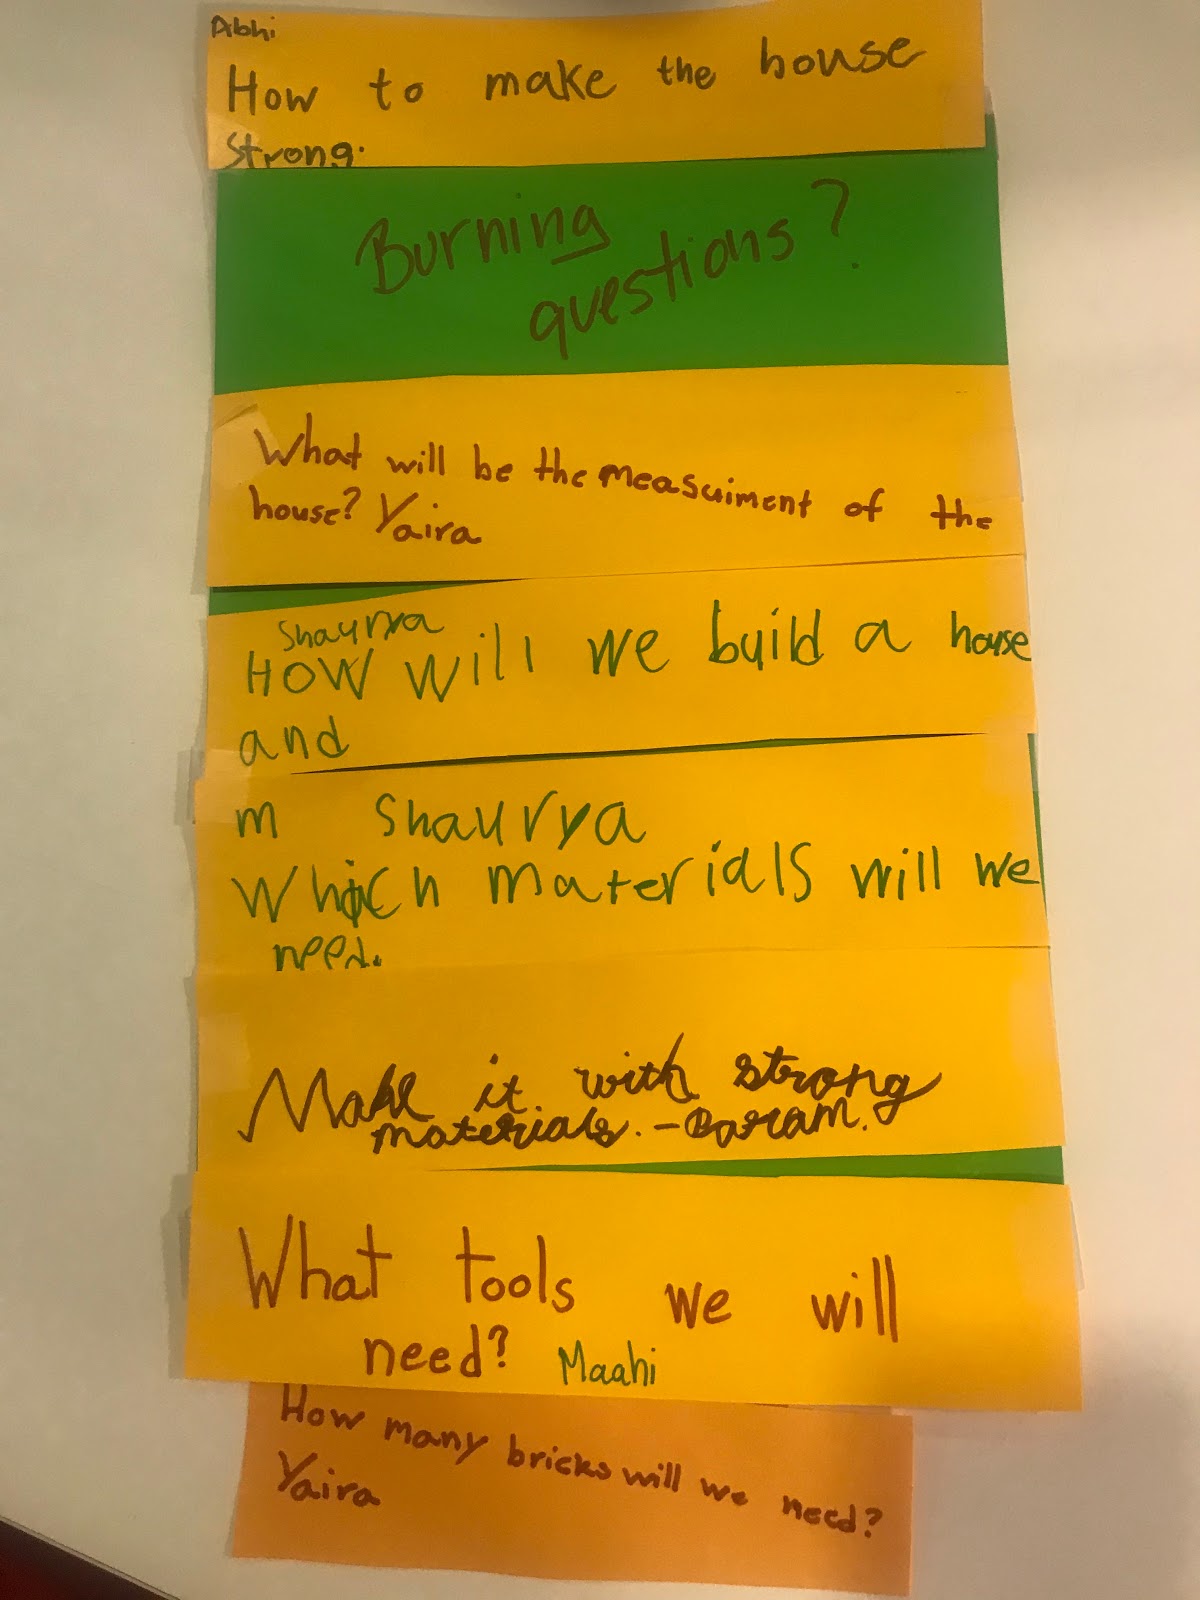 Abhi
How to make the house
Strong.
Burning
questions?
What will be the measuiment of the
house? Yaira
Shaurya
HOW Will we build a house
and
m Shaurya
Which materials will we
need.
Make it with strong
materials.-
What tools we will
need? Maahi
How many bricks will we need?
Yaira